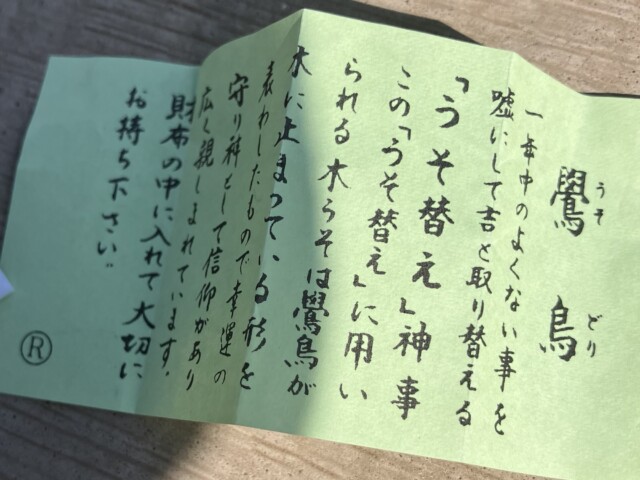 鷽鳥
うそ どり
一年中のよくない事を
嘘にして吉と取り替える
「うそ替え」神事
この「うそ替え」に用い
られる木うそは鷽鳥が
木に止まっている形を
表わしたもので幸運の
守り神として信仰があり
広く親しまれています.
財布の中に入れて大切に
お持ち下さい。
R